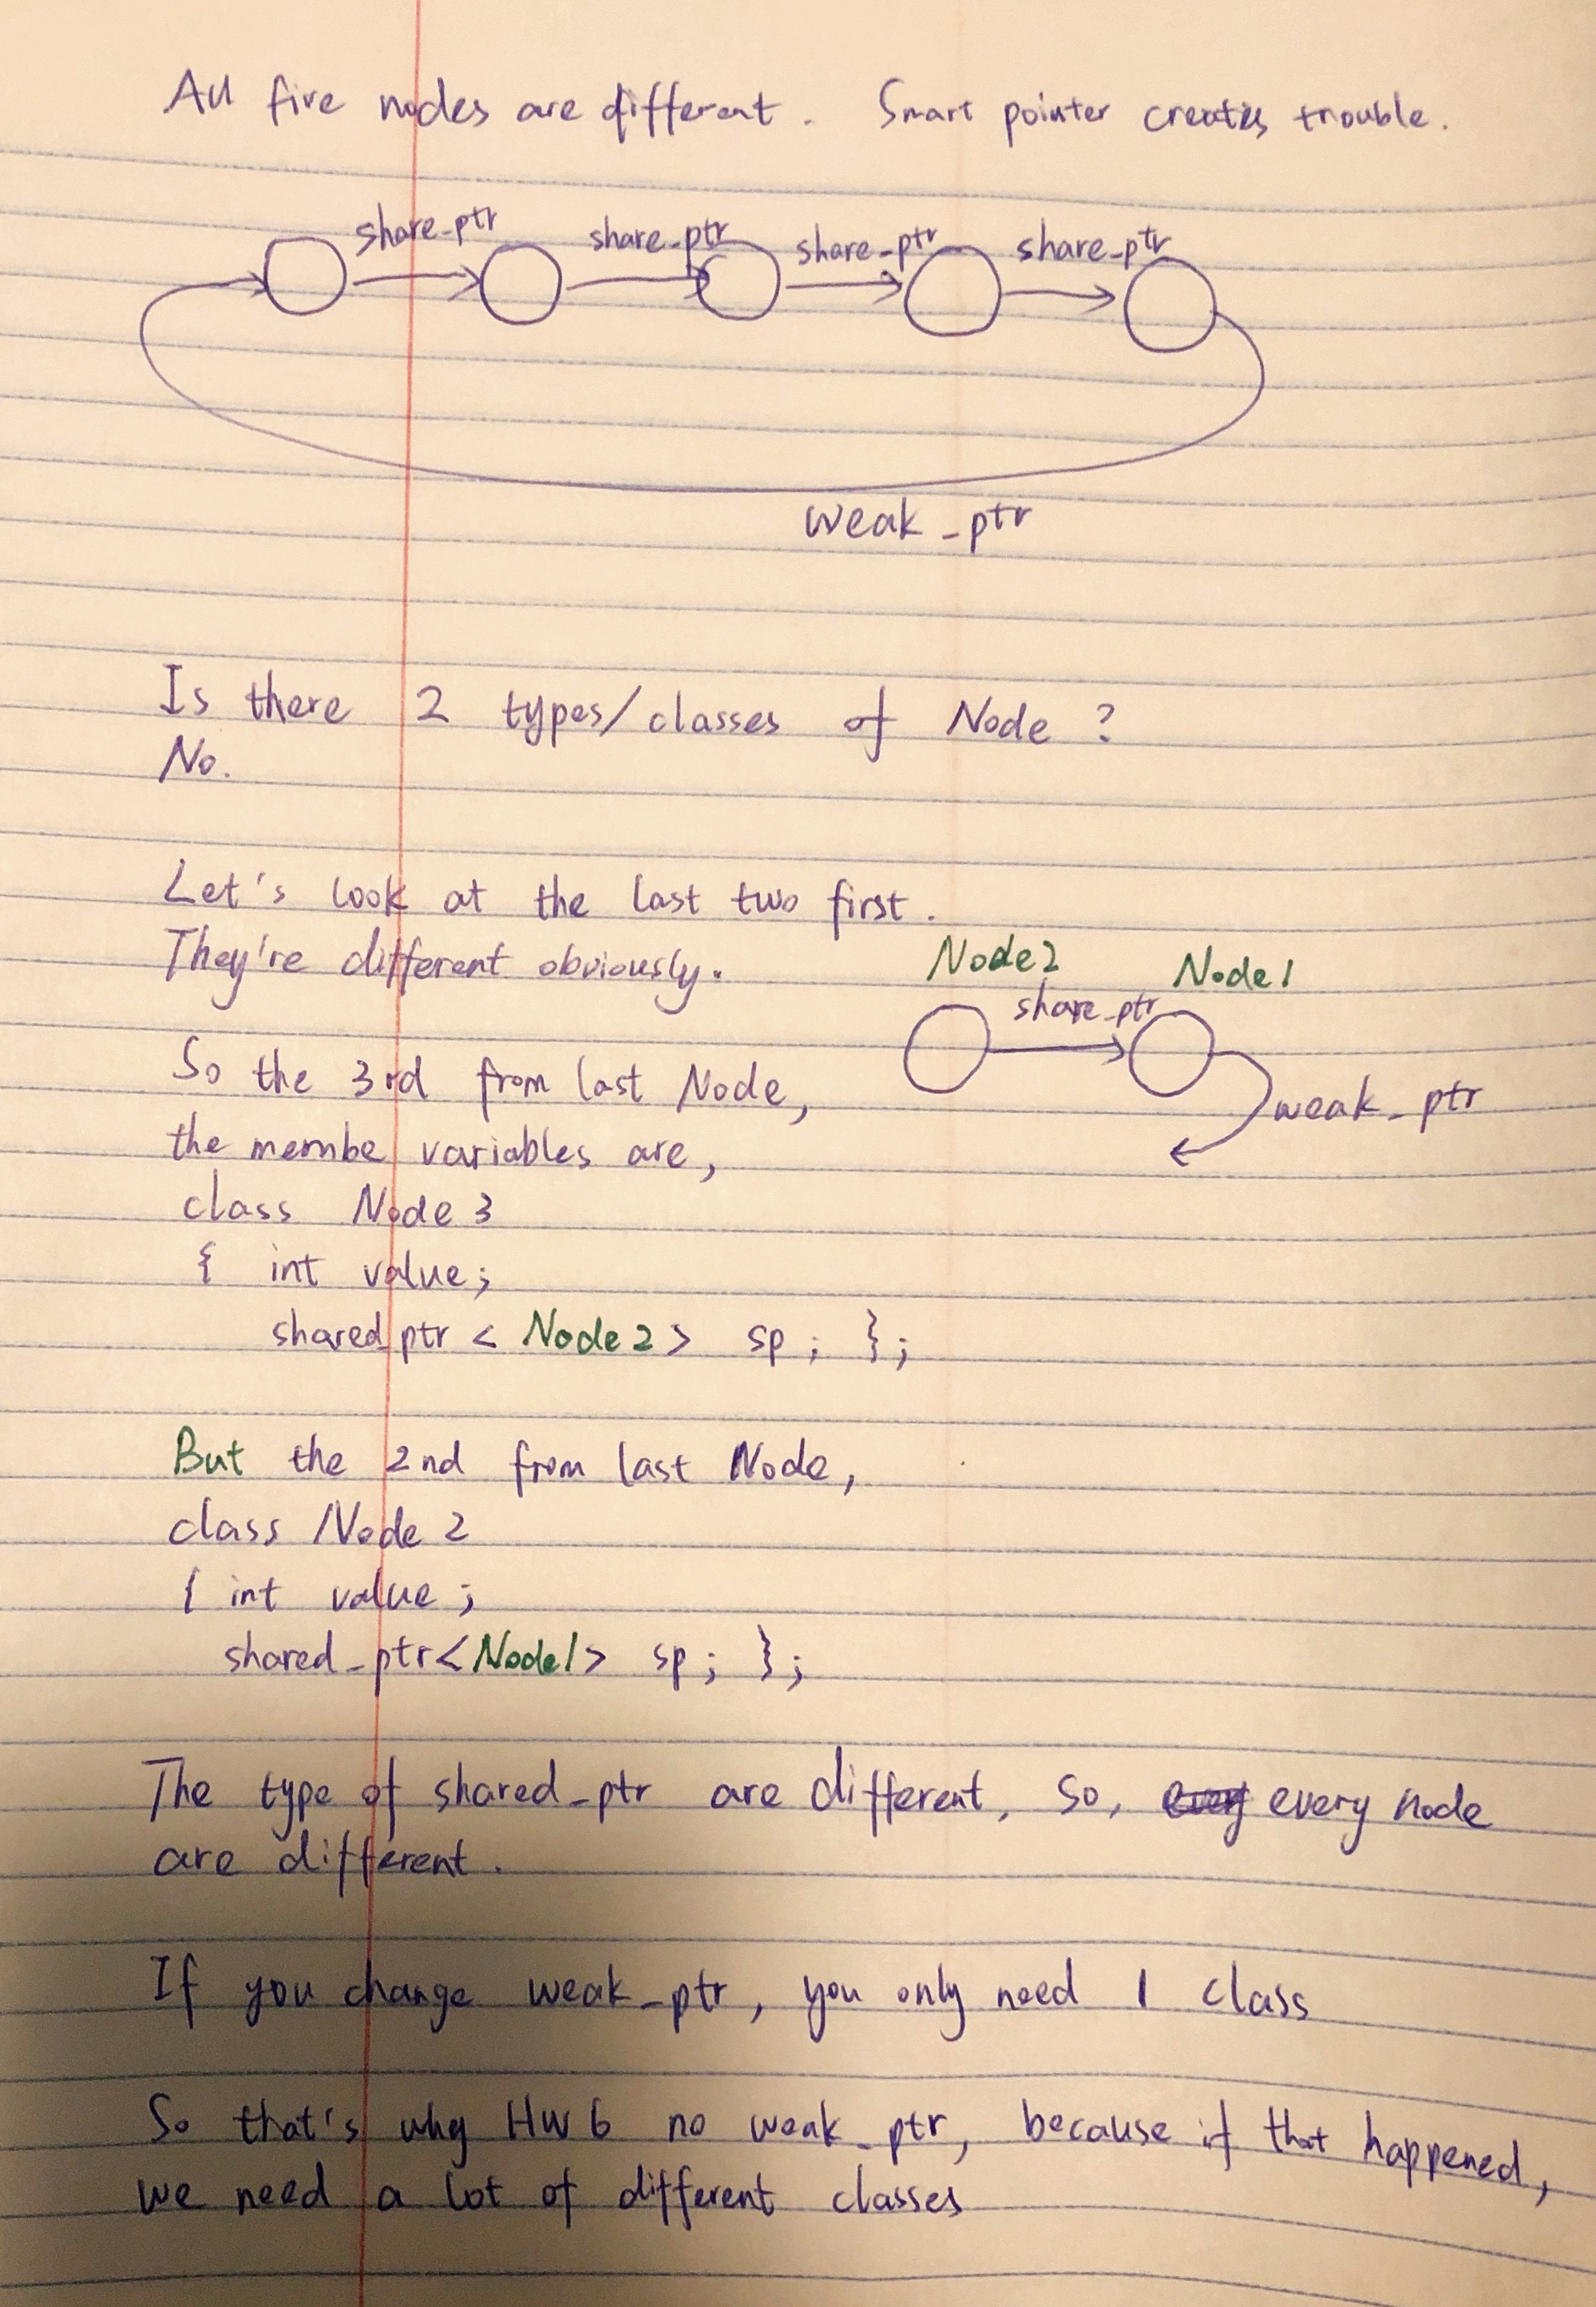 All five nodes are different. Smart pointer creates trouble.
share_ptr share_ptr share_ptr share_ptr
weak_ptr
Is there 2 types/classes of Node ?
No.
Let's look at the last two first.
They're different obviously.
Node2 Node1
share_ptr
weak_ptr
So the 3rd from last Node,
the membe variables are,
class Node 3
{ int value;
shared_ptr < Node 2 > sp ; };
But the 2nd from last Node,
class Node 2
{ int value ;
shared_ptr<Node1> sp ; };
The type of shared_ptr are different, so, every every node
are different.
If you change weak_ptr, you only need 1 class
So that's why HW 6 no weak_ptr, because if that happened,
we need a lot of different classes